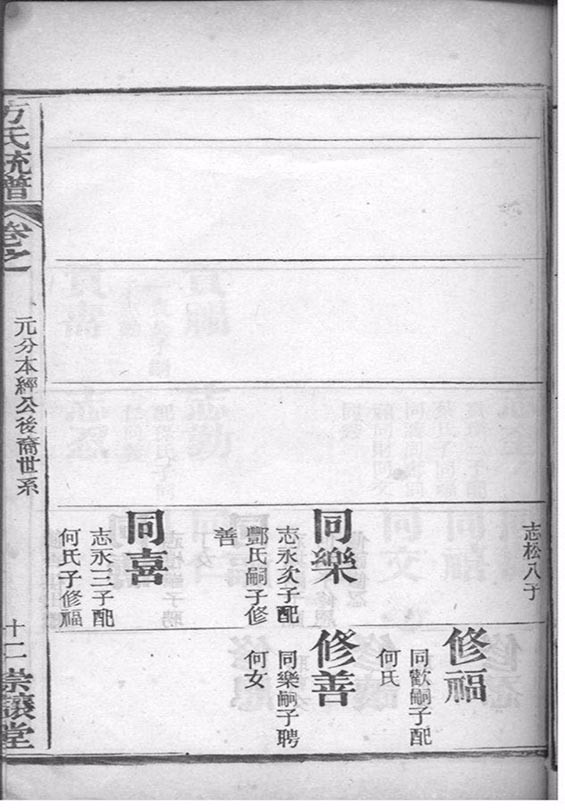 志松八子
修福
同歡嗣子配
何氏
同樂
志永次子配
酆氏嗣子修
善
修善
同樂嗣子聘
何女
同喜
志永三子配
何氏子修福
方氏統譜
卷之
元分本經公後裔世系
十二
崇讓堂